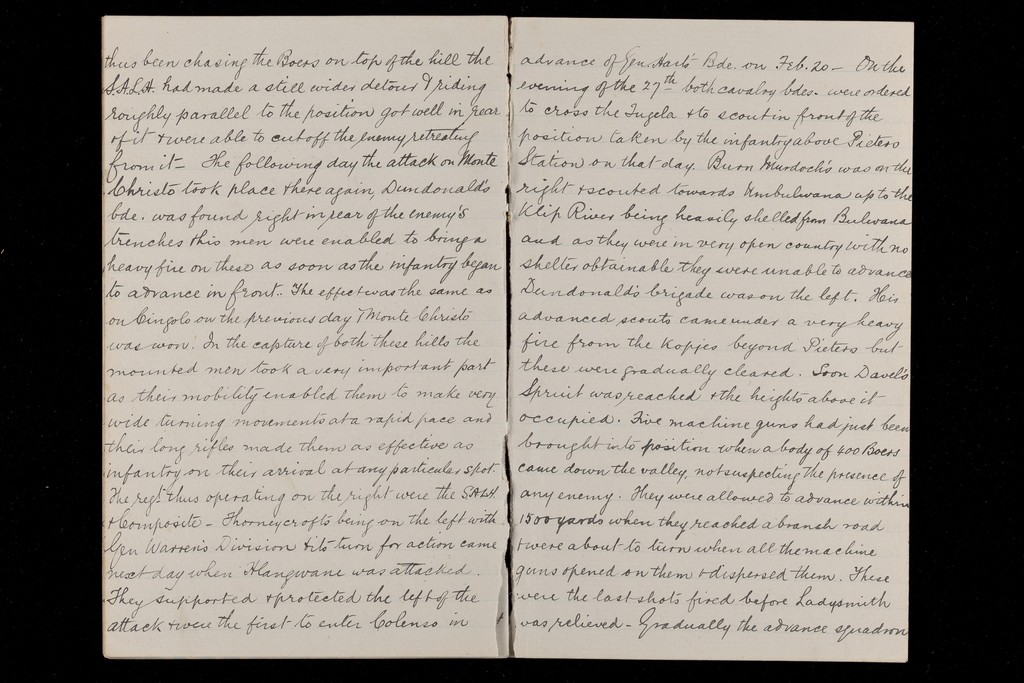 thus been chasing the Boers on top of the hill the
S.A.L.H. had made a still wider detour & riding
roughly parallel to the position got well in rear
of it & were able to cut off the enemy retreating
from it - The following day the attack on Monte
Christo took place & here again, Dundonald's
bde. was found right in rear of the enemy's
trenches & his men were enabled to bring a
heavy fire on these as soon as the infantry began
to advance in front. The effect was the same as
on Cingolo on the previous day & Monte Christo
was won. In the capture of both these hills the
mounted men took a very important part
as their mobility enabled them to make very
wide turning movements at a rapid pace and
their long rifles made them as effective as
infantry on their arrival at any particular spot.
The regts thus operating on the right were the S.A.L.H.
& Composite - Thorneycrofts being on the left with
Gen Warren's Division & its turn for action came
next day when Hlangwane was attacked.
They supported & protected the left of the
attack & were the first to enter Colenso in
advance of Gen. Hart's Bde. on Feb. 20 - On the
evening of the 27th both cavalry bdes. were ordered
to cross the Tugela & to scout in front of the
position taken by the infantry above Pieters
Station on that day. Burn Murdoch's was on the
right & scouted towards Umbulwana up to the
Klip River being heavily shelled from Bulwana
and as they were in very open country with no
shelter obtainable they were unable to advance
Dundonald's brigade was on the left. His
advanced scouts came under a very heavy
fire from the Kopjes beyond Pieters but
these were gradually cleared. Soon Davel's
Spruit was reached & the heights above it
occupied. Five machine guns had just been
brought into position when a body of 400 Boers
came down the valley, not suspecting the presence of
any enemy. They were allowed to advance within
1500 yards when they reached a branch road
& were about to turn when all the machine
guns opened on them & dispersed them. These
were the last shots fired before Ladysmith
was relieved - Gradually the advance squadron